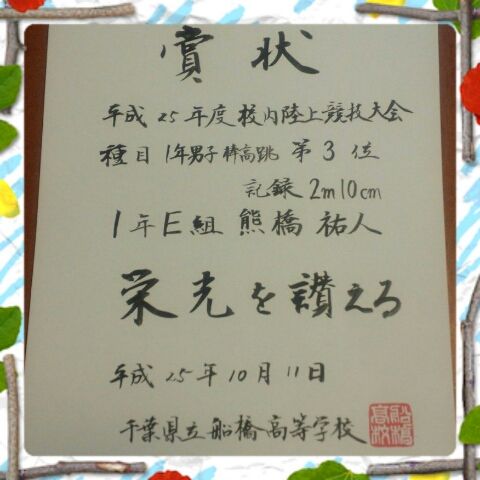 賞状
平成25年度校内陸上競技大会
種目 1年男子棒高跳 第3位
記録 2m10cm
1年E組 熊橋 祐人
栄光を讃える
平成25年10月11日
千葉県立船橋高等学校
船橋高校